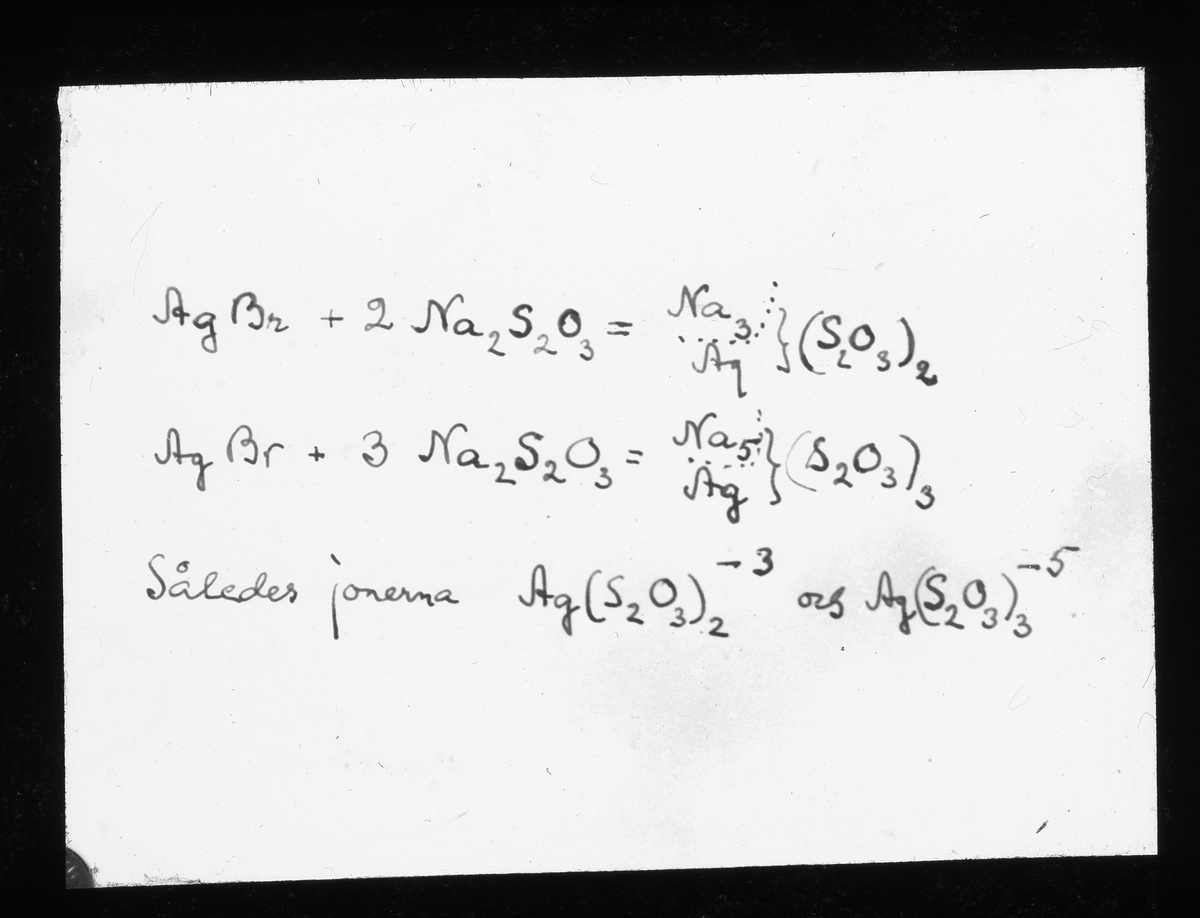 AgBr + 2 Na₂S₂O₃ = Na₃ Ag } (S₂O₃)₂
AgBr + 3 Na₂S₂O₃ = Na₅ Ag } (S₂O₃)₃
Således jonerna Ag(S₂O₃)₂⁻³ och Ag(S₂O₃)₃⁻⁵